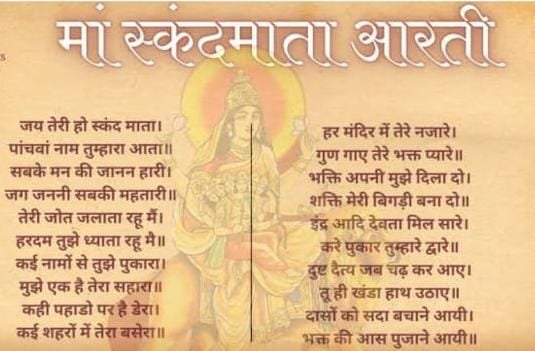 मां स्कंदमाता आरती
जय तेरी हो स्कंद माता।
पांचवां नाम तुम्हारा आता॥
सबके मन की जानन हारी।
जग जननी सबकी महतारी॥
तेरी जोत जलाता रहू मैं।
हरदम तुझे ध्याता रहू मै॥
कई नामों से तुझे पुकारा।
मुझे एक है तेरा सहारा॥
कही पहाडो पर है डेरा।
कई शहरों में तेरा बसेरा॥
हर मंदिर में तेरे नजारे।
गुण गाए तेरे भक्त प्यारे॥
भक्ति अपनी मुझे दिला दो।
शक्ति मेरी बिगड़ी बना दो॥
इंद्र आदि देवता मिल सारे।
करे पुकार तुम्हारे द्वारे॥
दुष्ट दैत्य जब चढ़ कर आए।
तू ही खंडा हाथ उठाए॥
दासों को सदा बचाने आयी।
भक्त की आस पुजाने आयी॥